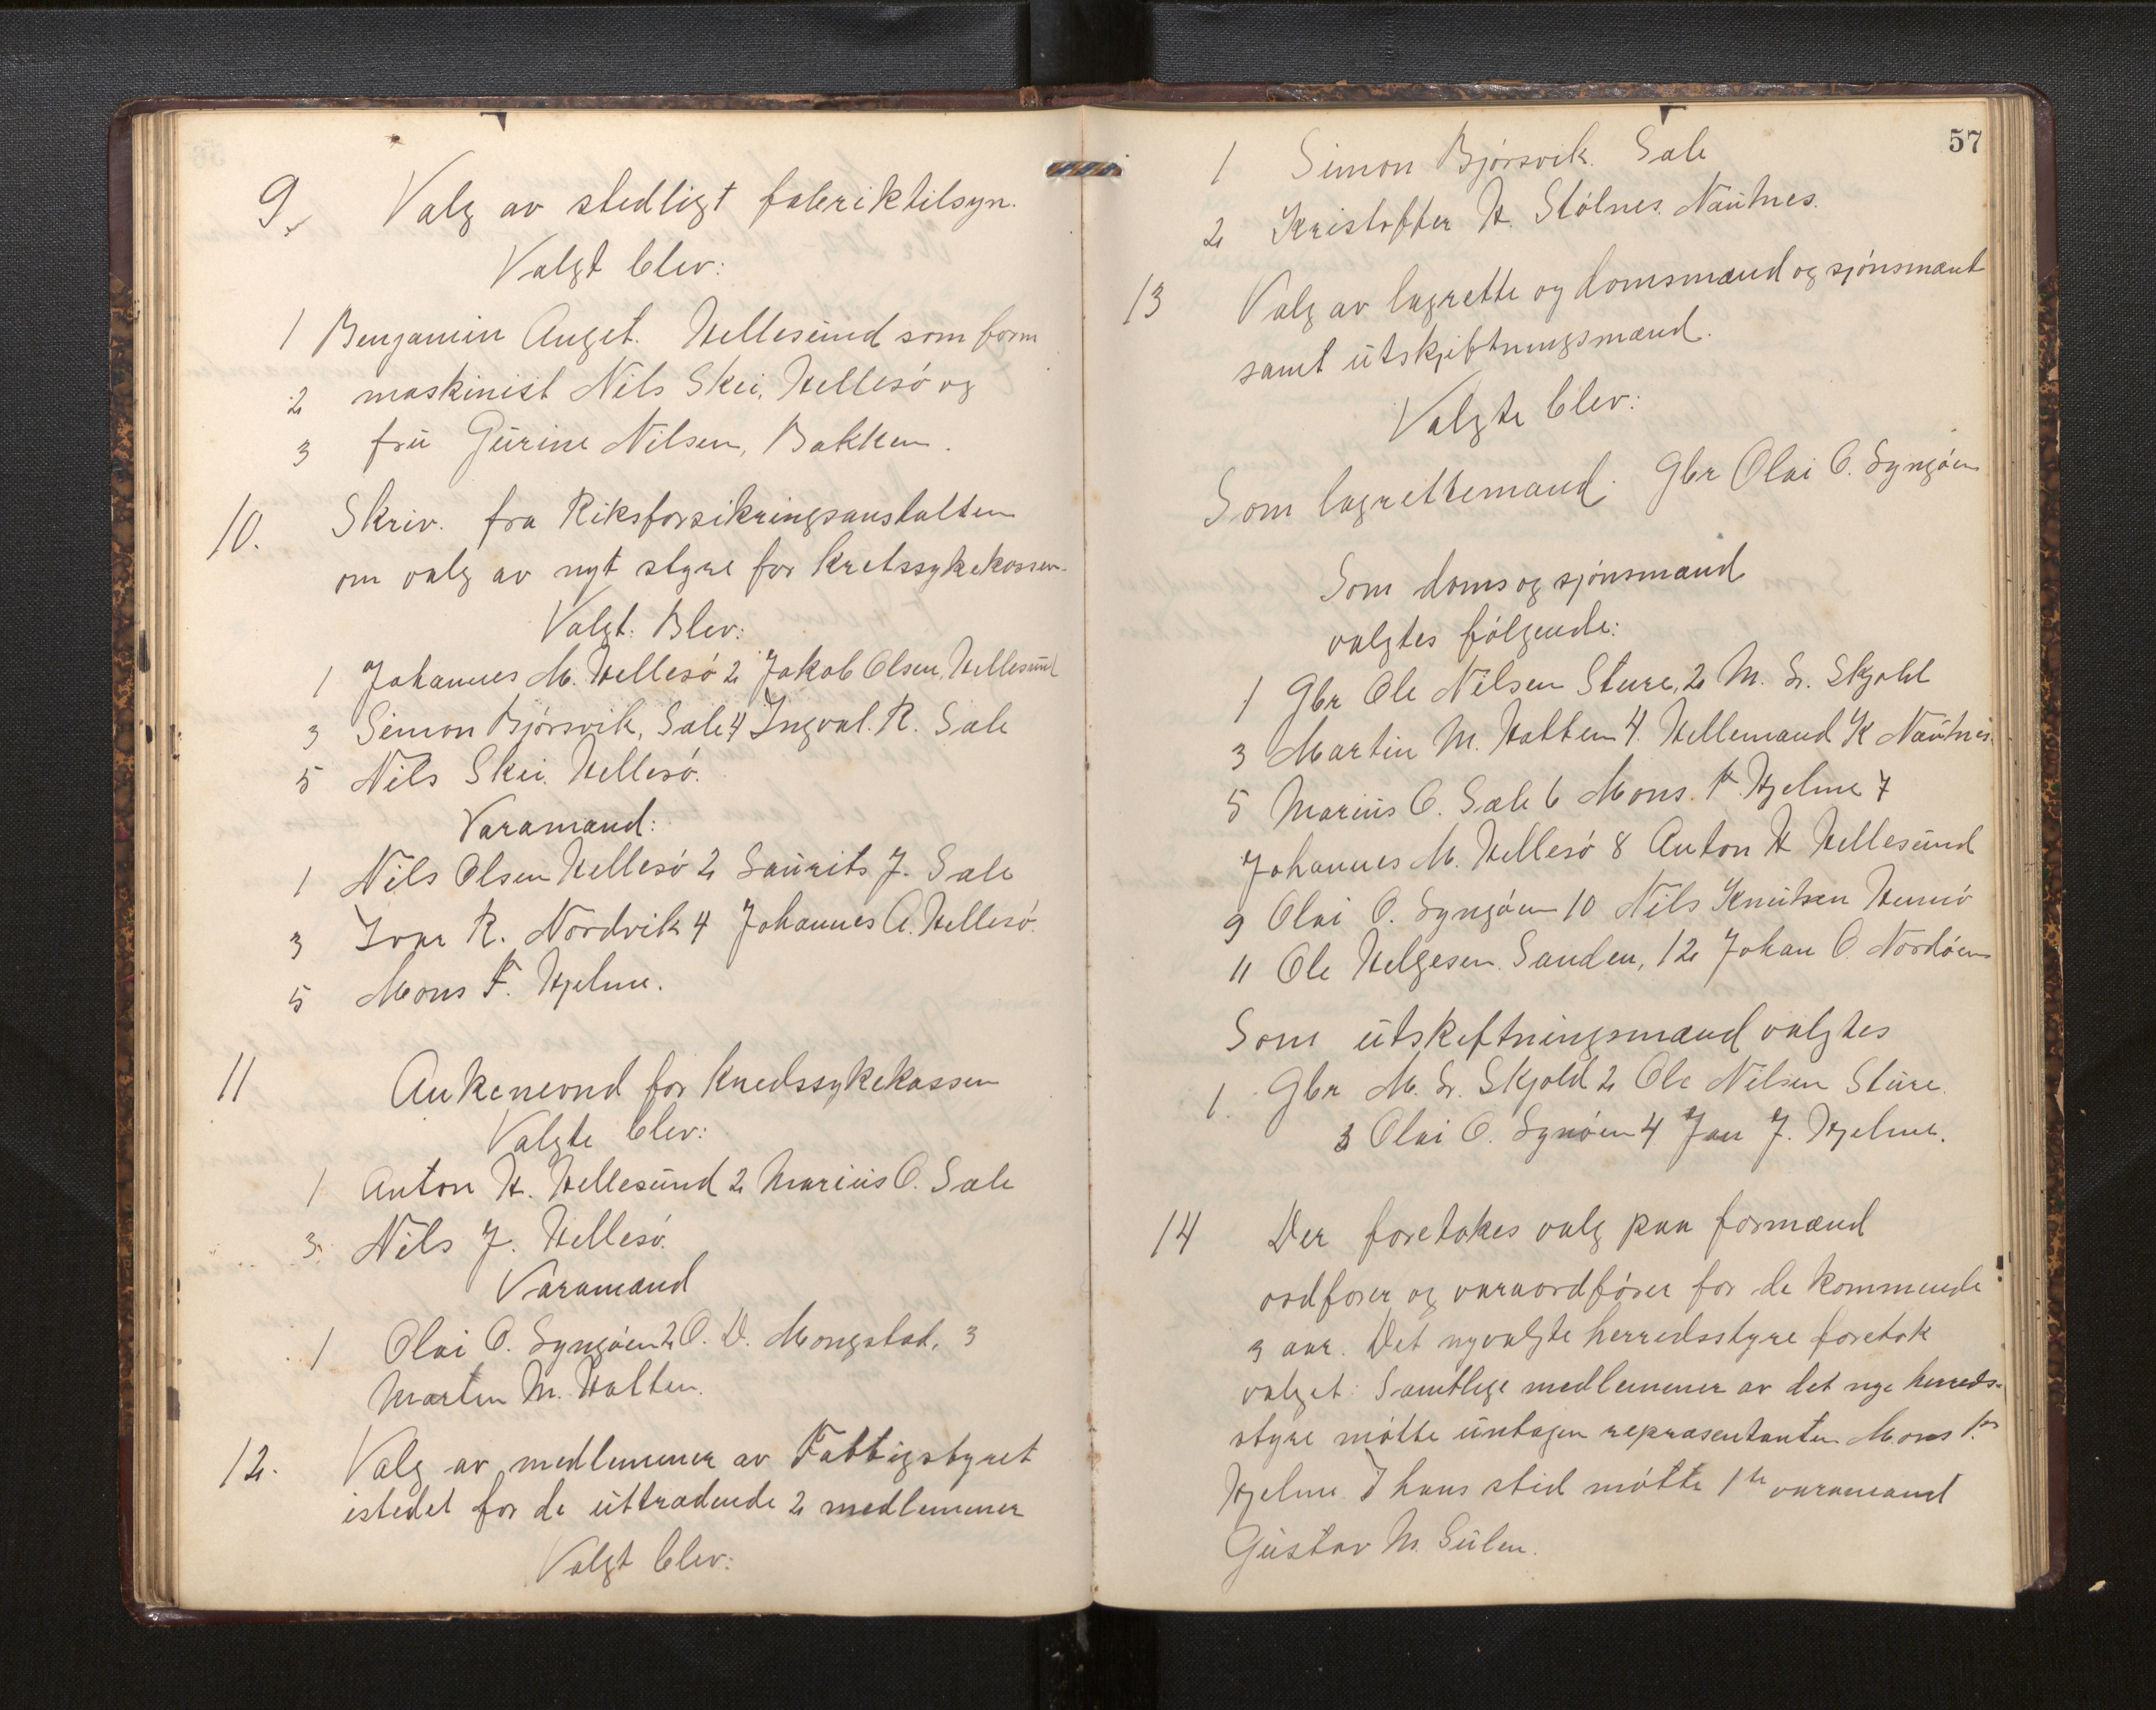 9. Valg av stedligt fabriktilsyn.
Valgt blev:
1 Benjamin Auget. Hellesund som form
2 maskinist Nils Skei, Hellesø og
3 fru Gurine Nilsen, Bakken.
10. Skriv. fra Riksforsikringsanstalten
om valg av nyt styre for kretssykekassen.
Valgt. Blev:
1 Johannes M. Hellesø 2 Jakob Olsen, Hellesund
3 Simon Bjørsvik, Sæle 4 Ingval. R. Sæle
5 Nils Skei. Hellesø.
Varamænd:
1 Nils Olsen Hellesø 2 Laurits J. Sæle
3 Ivar R. Nordvik 4 Johannes A. Hellesø.
5 Mons F. Hjelme.
11 Ankenevnd for Kredssykekassen
Valgte blev:
1 Anton H. Hellesund 2 Marius O. Sæle
3. Nils J. Hellesø.
Varamænd
1 Olai O. Syngøen 2 O. D. Mongstad, 3
Martin M. Hatten.
12. Valg av medlemmer av Fattigstyret
istedet for de uttrædende 2 medlemmer
Valgt blev:
57
1 Simon Bjørsvik. Sæle
2 Kristoffer H. Stølnes. Nautnes.
13 Valg av lagrette og domsmænd og sjønsmænd
samt utskjiftningsmænd.
Valgte blev:
Som lagrettemand. Gbr Olai O. Syngøen
Som doms og sjønsmænd
valgtes følgende:
1 Gbr Ole Nilsen Sture, 2 M. L. Skjold
3 Martin M. Hatten 4. Hellemand K Nautnes.
5 Marius O. Sæle 6 Mons F. Hjelme 7
Johannes M. Hellesø 8 Anton H Hellesund
9 Olai O. Syngøen 10 Nils Knutsen Hernø
11 Ole Helgesen Sanden, 12 Johan O. Nordøen
Som utskeftningsmænd valgtes
1. Gbr M. L. Skjold 2 Ole Nilsen Sture.
3 Olai O. Synøen 4 Jan J. Hjelme.
14 Der foretokes valg paa formænd
ordfører og varaordfører for de kommende
3 aar. Det nyvalgte herredsstyre foretok
valget. Samtlige medlemmer av det nye herreds-
styre møtte untagen repræsentanten Mons F.
Hjelme. I hans sted møtte 1te varamand
Gustav M. Sulen.